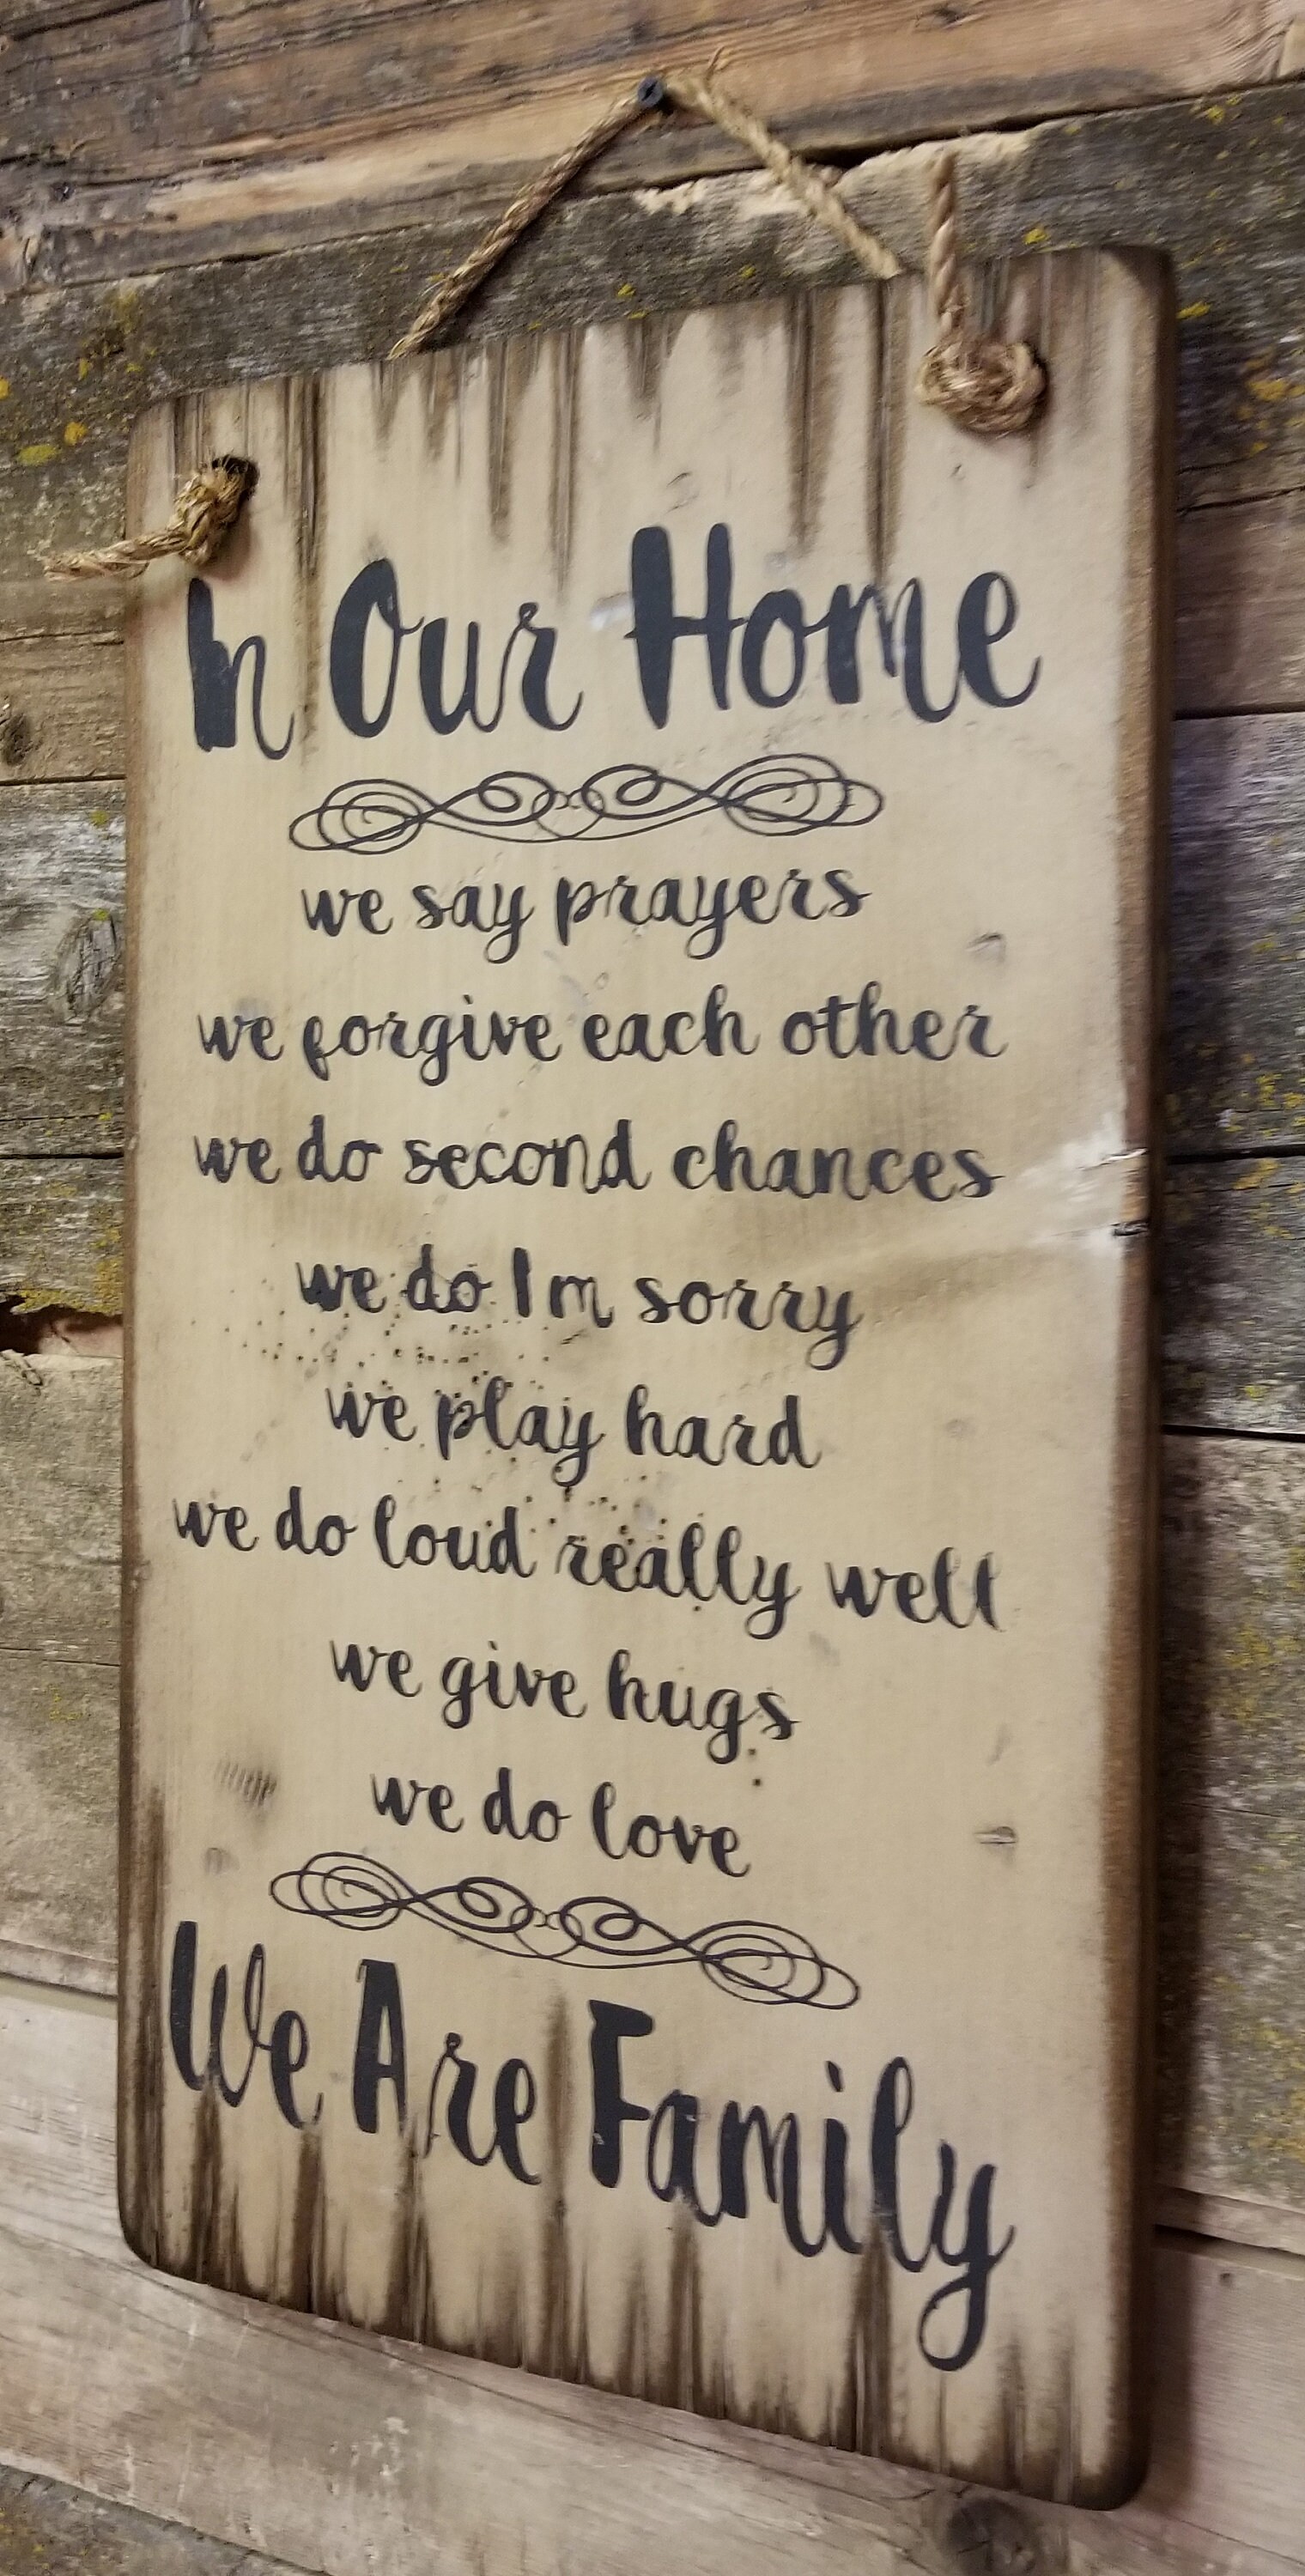 In Our Home
we say prayers
we forgive each other
we do second chances
we do Im sorry
we play hard
we do loud really well
we give hugs
we do love
We Are Family